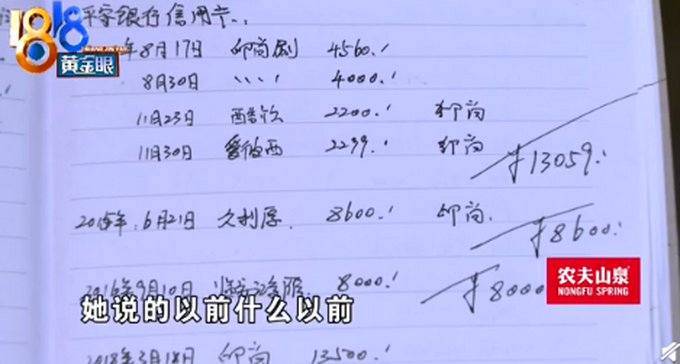 平安银行信用卡..
1818
黄金眼
年8月17日 印尚刷 4560.
8月30日 、、、、 4000.
11月23日 2200. 印尚
11月30日 爱伽西 2299. 印尚
¥13059.
2015年.6月21日 久利厚. 8600. 印尚.
¥8600.
2016年9月10日 8000.
¥8000
农夫山泉
NONGFU SPRING
她说的以前什么以前
2018年3月18日 印尚 13500.